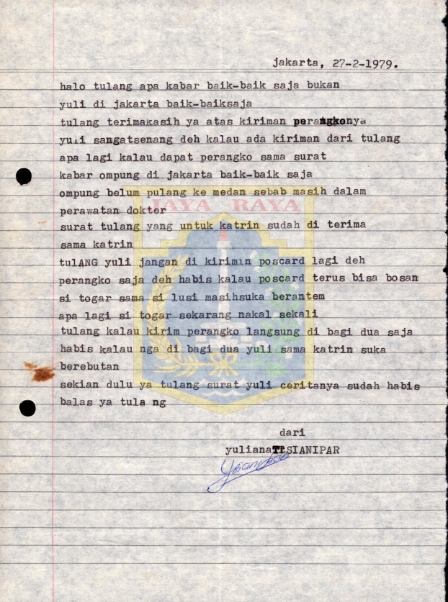 jakarta, 27-2-1979.
halo tulang apa kabar baik-baik saja bukan
yuli di jakarta baik-baiksaja
tulang terimakasih ya atas kiriman perangkonya
yuli sangatsenang deh kalau ada kiriman dari tulang
apa lagi kalau dapat perangko sama surat
kabar ompung di jakarta baik-baik saja
ompung belum pulang ke medan sebab masih dalam
perawatan dokter
JAYA RAYA
surat tulang yang untuk katrin sudah di terima
sama katrin
tulANG yuli jangan di kirimin poscard lagi deh
perangko saja deh habis kalau poscard terus bisa bosan
si togar sama si lusi masihsuka berantem
apa lagi si togar sekarang nakal sekali
tulang kalau kirim perangko langsung di bagi dua saja
habis kalau nga di bagi dua yuli sama katrin suka
berebutan
sekian dulu ya tulang surat yuli ceritanya sudah habis
balas ya tula ng
dari
yulianaTISIANIPAR